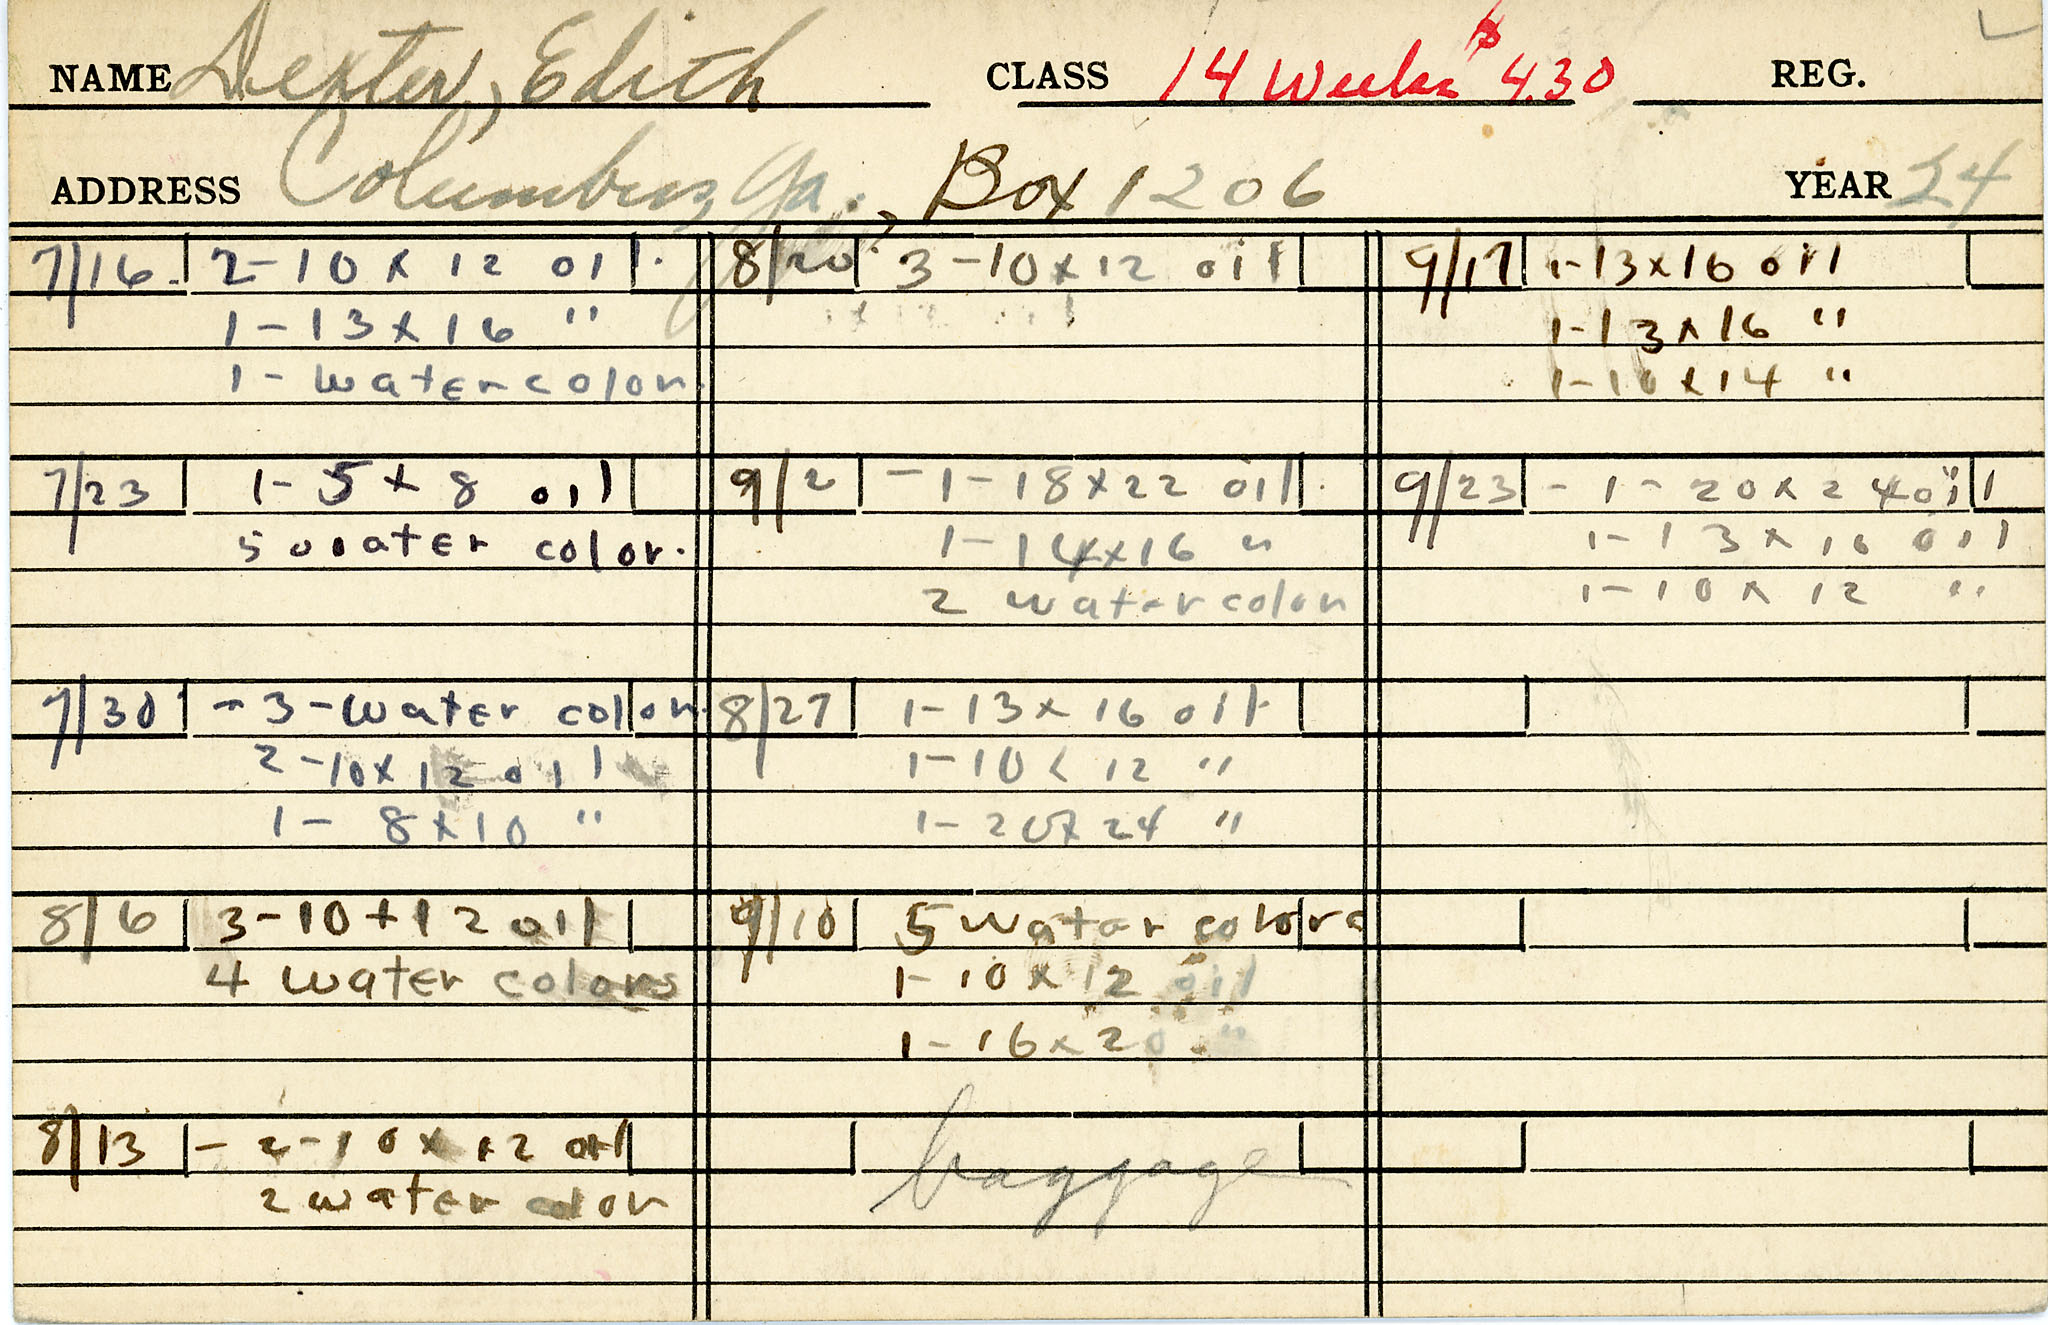 NAME Dexter, Edith CLASS 14 Weeks $4.30 REG.
ADDRESS Columbus, Ga., Box 1206 YEAR 24
7/16 2-10x12 oil.
1-13x16 "
1-water color.
7/23 1-5x8 oil
5 water color.
7/30 -3-water color.
2-10x12 oil
1-8x10 "
8/6 3-10+12 oil
4 water colors
8/13 -2-10x12 oil
2 water color
8/20 3-10x12 oil
9/2 -1-18x22 oil.
1-14x16 "
2 water color
8/27 1-13x16 oil
1-10x12 "
1-20x24 "
9/10 5 water colors
1-10x12 oil
1-16x20 "
baggage
9/17 1-13x16 oil
1-13x16 "
1-10x14 "
9/23 -1-20x24 oil
1-13x16 oil
1-10x12 "